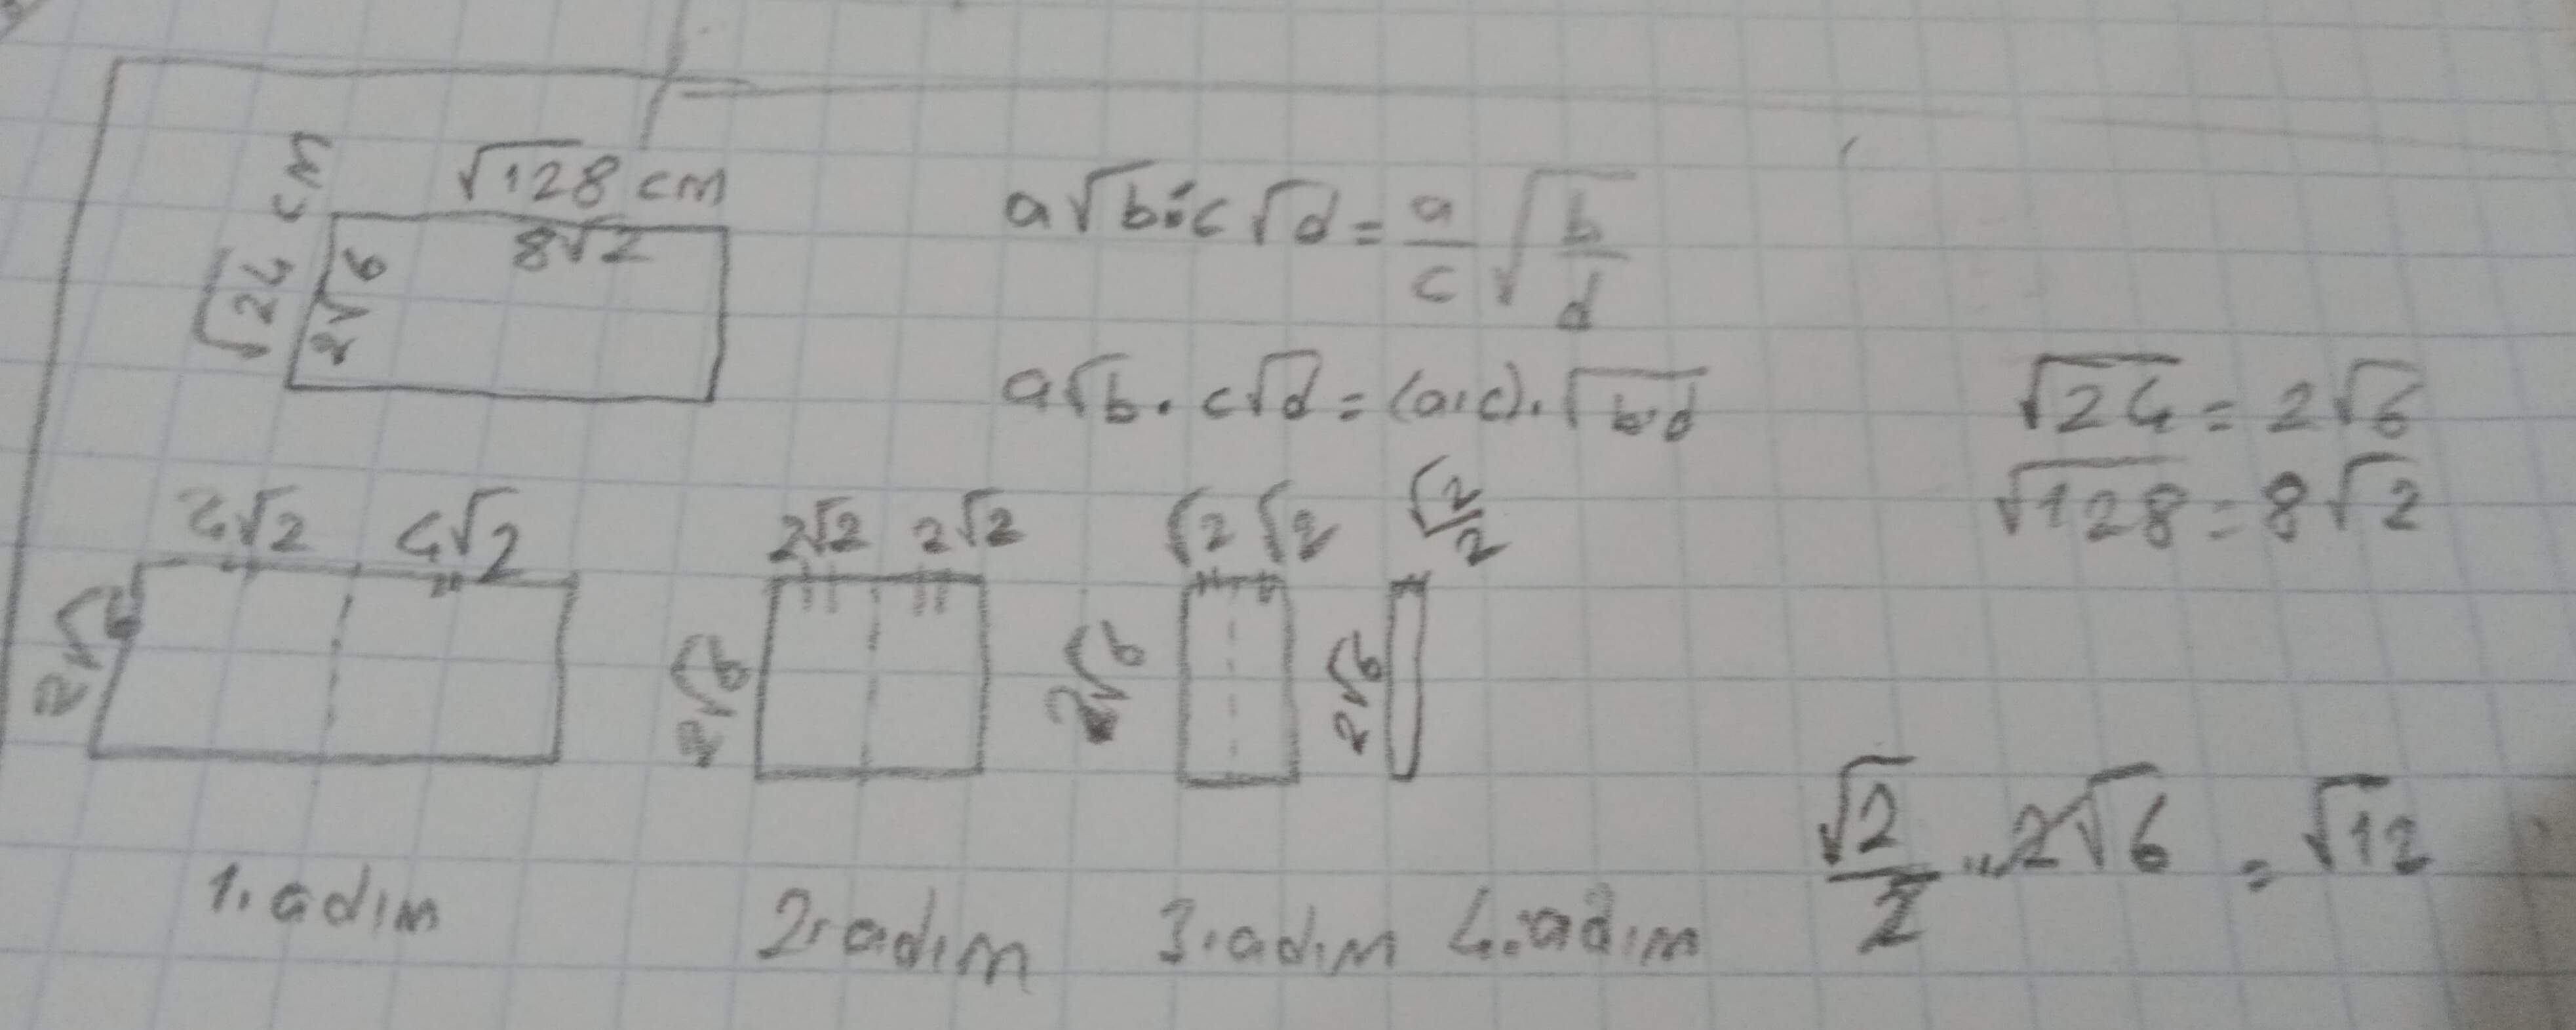 √128 cm
√24 cm
2√6
8√2
a√b÷c√d = a/c √b/d
a√b . c√d = (a.c).√b.d
√24 = 2√6
√128 = 8√2
4√2 4√2
2√6
2√2 2√2
2√6
√2 √2
2√6
√2/2
2√6
√2/2 . 2√6 = √12
1. adım
2. adım
3. adım
4. adım